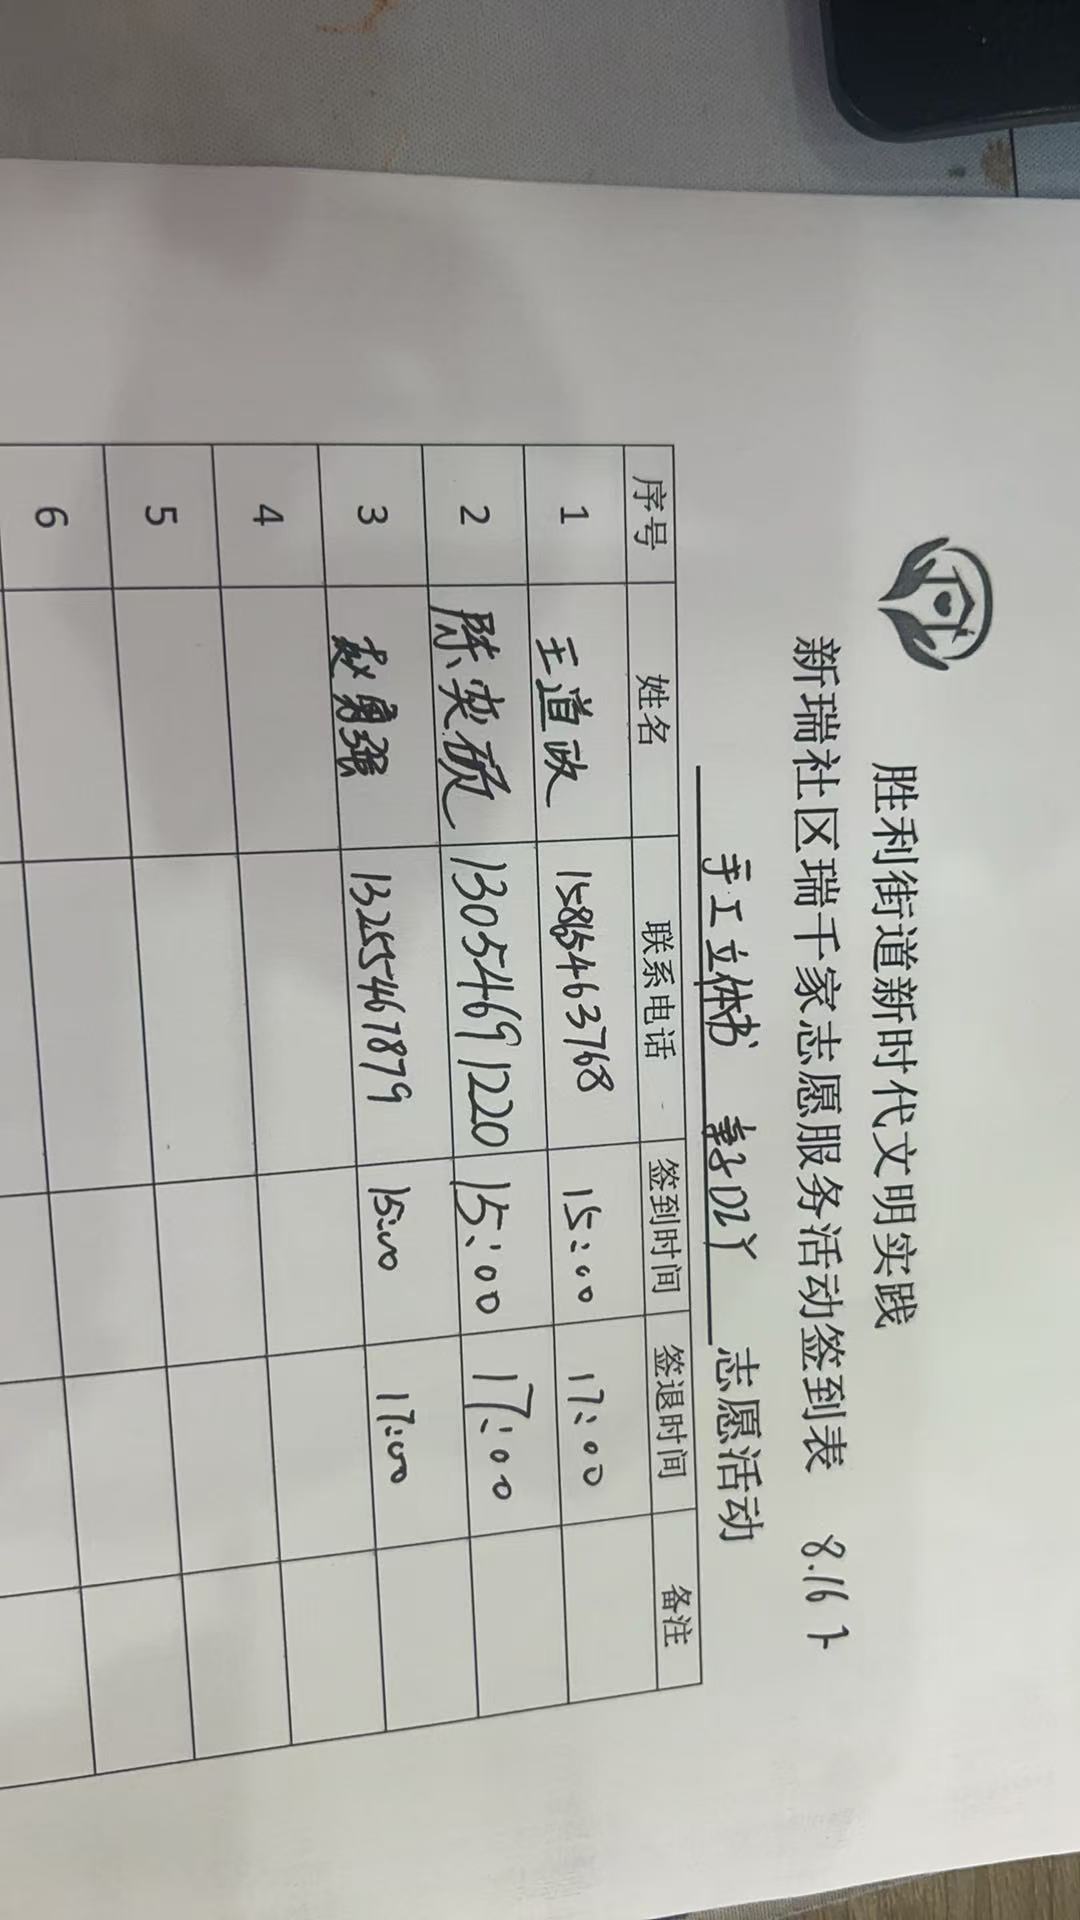 胜利街道新时代文明实践
新瑞社区瑞千家志愿服务活动签到表 8.16 下
手工立体书 亲子DIY 志愿活动
序号 姓名 联系电话 签到时间 签退时间 备注
1 王道政 15865463768 15:00 17:00
2 陈奕硕 13054691220 15:00 17:00
3 赵勇强 13255467879 15:00 17:00
4
5
6